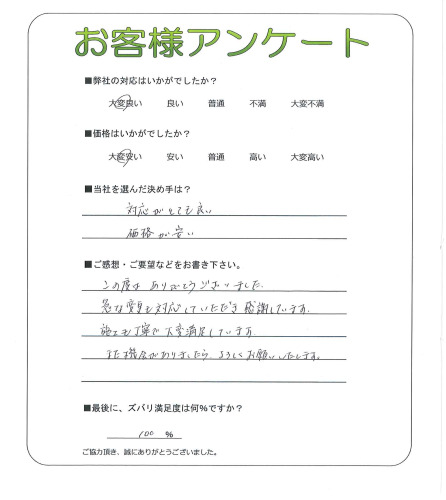 お客様アンケート
■弊社の対応はいかがでしたか？
大変良い 良い 普通 不満 大変不満
■価格はいかがでしたか？
大変安い 安い 普通 高い 大変高い
■当社を選んだ決め手は？
対応がとても良い
価格が安い
■ご感想・ご要望などをお書き下さい。
この度は ありがとうございました.
急な変更も対応していただき 感謝しています.
施工も丁寧で 大変満足しています.
また機会がありましたら よろしくお願いいたします。
■最後に、ズバリ満足度は何％ですか？
100 ％
ご協力頂き、誠にありがとうございました。